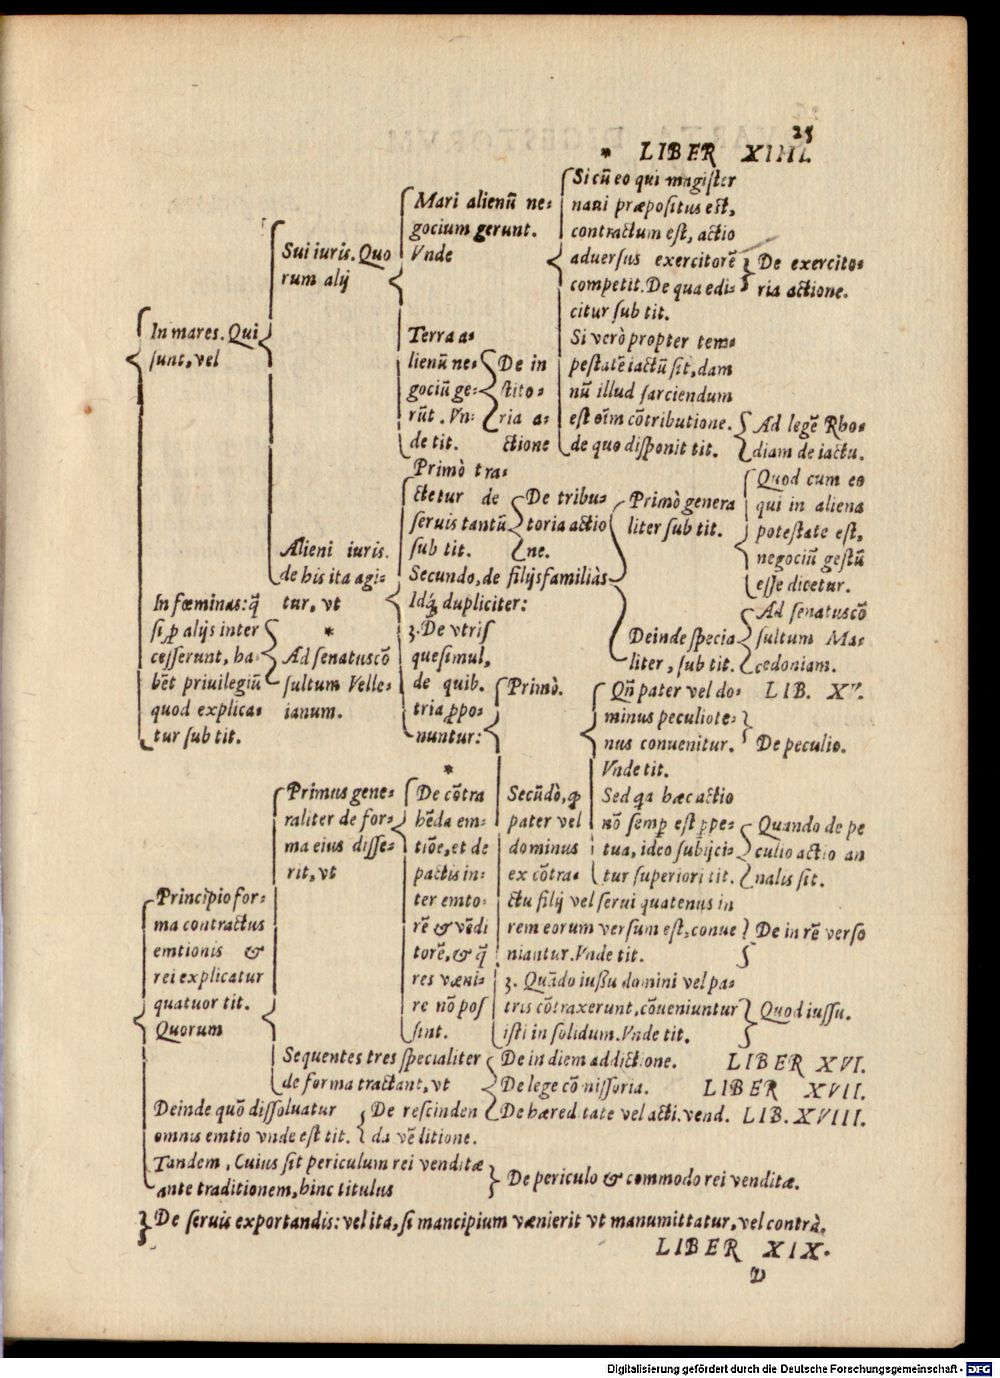 25
* LIBER XIIII.
In mares. Qui
sunt, vel
Sui iuris. Quo
rum alij
Mari alienũ ne:
gocium gerunt.
Vnde
Si cũ eo qui magister
naui præpositus est,
contractum est, actio
aduersus exercitorẽ
competit. De qua edi:
citur sub tit.
De exercito:
ria actione.
Si verò propter tem:
pestatẽ iactũ sit, dam
nũ illud sarciendum
est oĩm cõtributione.
de quo disponit tit.
Ad legẽ Rho:
diam de iactu.
Terra a:
lienũ ne:
gociũ ge:
rũt. Vn:
de tit.
De in
stito:
ria a:
ctione
Alieni iuris.
de his ita agi:
tur, vt
Primò tra:
ctetur de
seruis tantũ
sub tit.
De tribu:
toria actio
ne.
Secundo, de filijsfamiliàs
Idq́; dupliciter:
Primò genera
liter sub tit.
Quod cum eo
qui in aliena
potestate est,
negociũ gestũ
esse dicetur.
Deinde specia
liter, sub tit.
Ad senatuscõ
sultum Ma:
cedoniam.
3. De vtris
que simul,
de quib.
tria ꝓpo:
nuntur:
In fœminas: q̃
si ꝓ alijs inter
cesserunt, ha:
bẽt priuilegiũ
quod explica:
tur sub tit.
*
Ad senatuscõ
sultum Velle:
ianum.
LIB. XV.
Primò.
Qñ pater vel do:
minus peculiote:
nus conuenitur.
Vnde tit.
De peculio.
Sed q̃a hæc actio
nõ semꝑ est ꝑpe:
tua, ideo subijci:
tur superiori tit.
Quando de pe
culio actio an
nalis sit.
Secũdò, ꝙ
pater vel
dominus
ex cõtra:
ctu filij vel serui quatenus in
rem eorum versum est, conue
niantur. Vnde tit.
De in rẽ verso
3. Quãdo iussu domini vel pa:
tris cõtraxerunt, cõueniuntur
isti in solidum. Vnde tit.
Quod iussu.
Principio for:
ma contractus
emtionis &
rei explicatur
quatuor tit.
Quorum
Primus gene:
raliter de for:
ma eius disse:
rit, vt
*
De cõtra
hẽda em:
tiõe, et de
pactis in:
ter emto:
rẽ & vẽdi
torẽ, & q̃
res væni:
re nõ pos
sint.
Sequentes tres specialiter
de forma tractant, vt
De in diem addictione.
De lege cõmissoria.
De hæreditate vel acti. vend.
LIBER XVI.
LIBER XVII.
LIB. XVIII.
Deinde quõ dissoluatur
omnis emtio vnde est tit.
De rescinden
da vẽditione.
Tandem, Cuius sit periculum rei venditæ
ante traditionem, hinc titulus
De periculo & commodo rei venditæ.
De seruis exportandis: vel ita, si mancipium vænierit vt manumittatur, vel contrà.
LIBER XIX.
D
Digitalisierung gefördert durch die Deutsche Forschungsgemeinschaft - DFG